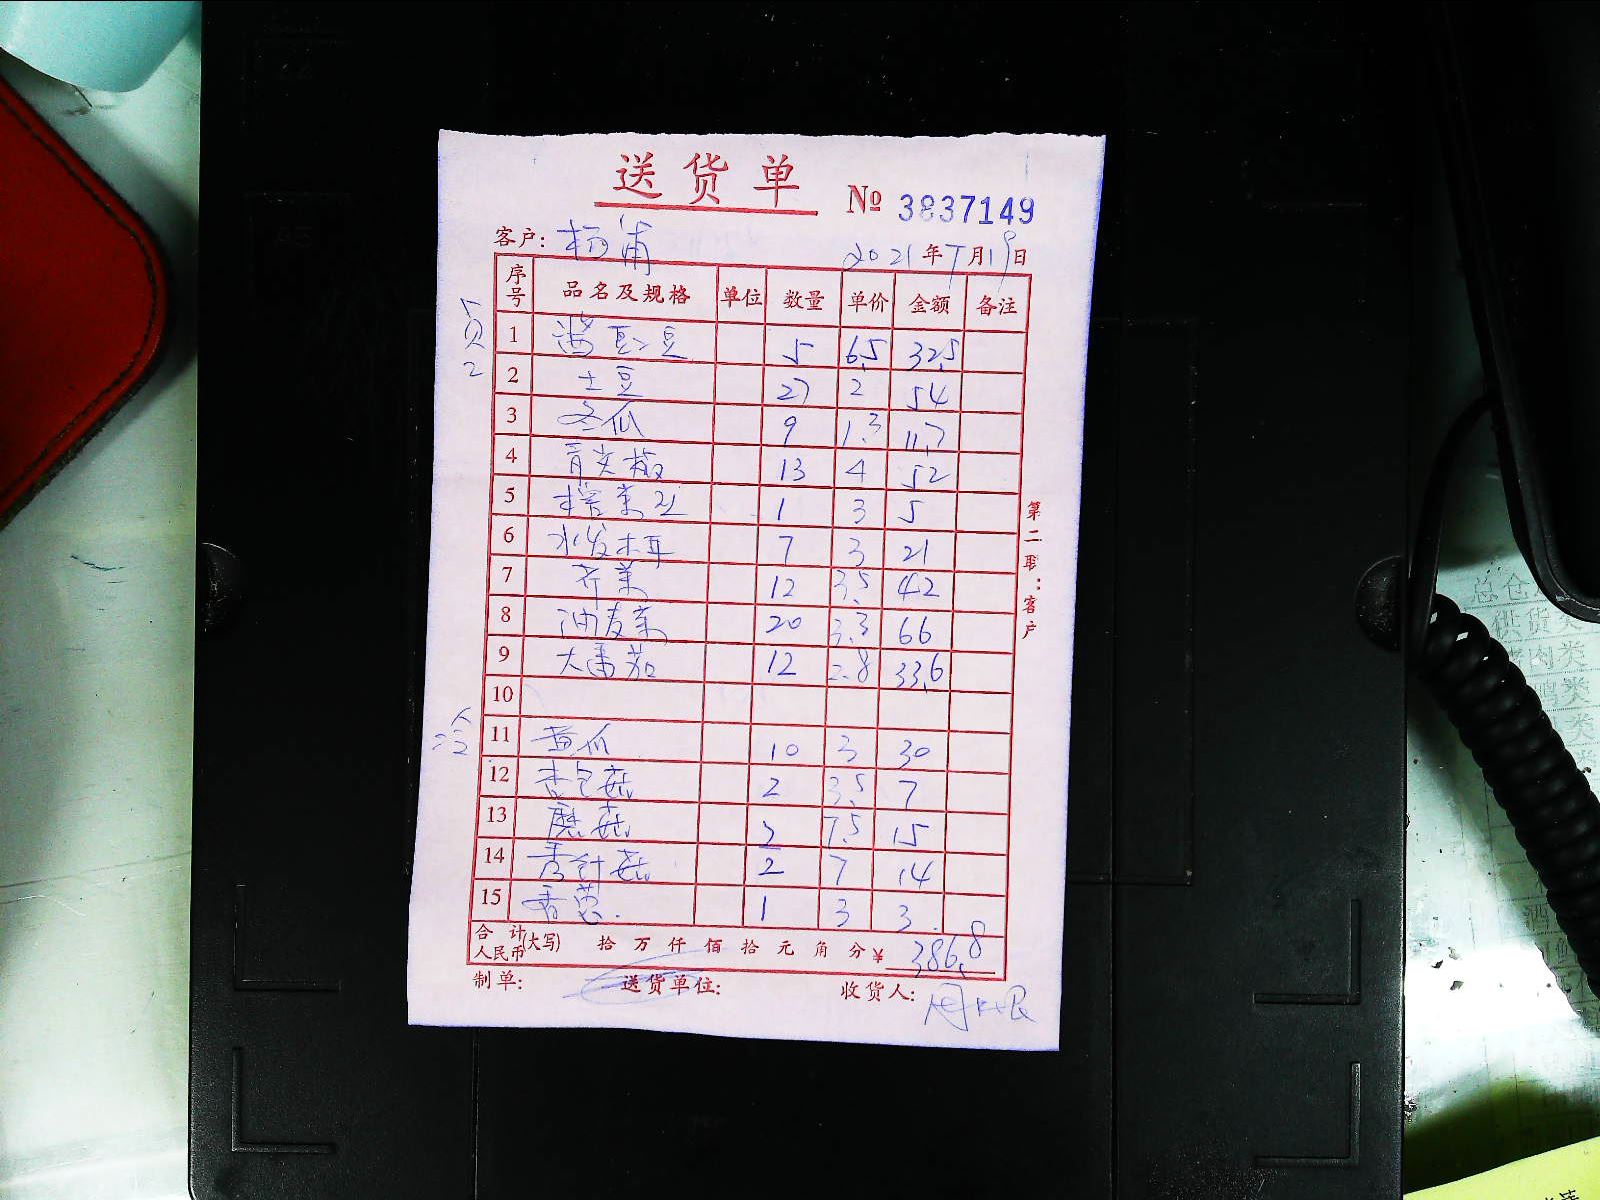 送货单
№ 3837149
客户: 杨浦 2021年7月19日
序号 品名及规格 单位 数量 单价 金额 备注
1 5 6.5 32.5
2 土豆 27 2 54
3 冬瓜 9 1.3 11.7
4 青尖椒 13 4 52
5 榨菜丝 1 3 5
6 水发木耳 7 3 21
7 荠菜 12 3.5 42
8 油麦菜 20 3.3 66
9 大番茄 12 2.8 33.6
10
11 黄瓜 10 3 30
12 杏包菇 2 3.5 7
13 蘑菇 2 7.5 15
14 秀针菇 2 7 14
15 香葱. 1 3 3.
合计人民币(大写) 拾 万 仟 佰 拾 元 角 分 ¥ 386.8
制单: 送货单位: 收货人:
第二联:客户
总仓
供货
肉类
鸭类
类
类
酒